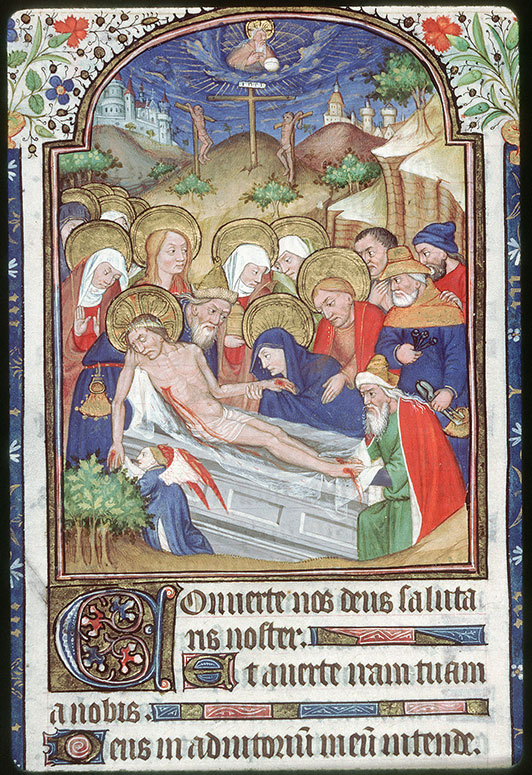 INRI
Conuerte nos deus saluta
ris noster.
Et auerte iram tuam
a nobis.
Deus in adiutoriū meū intende.